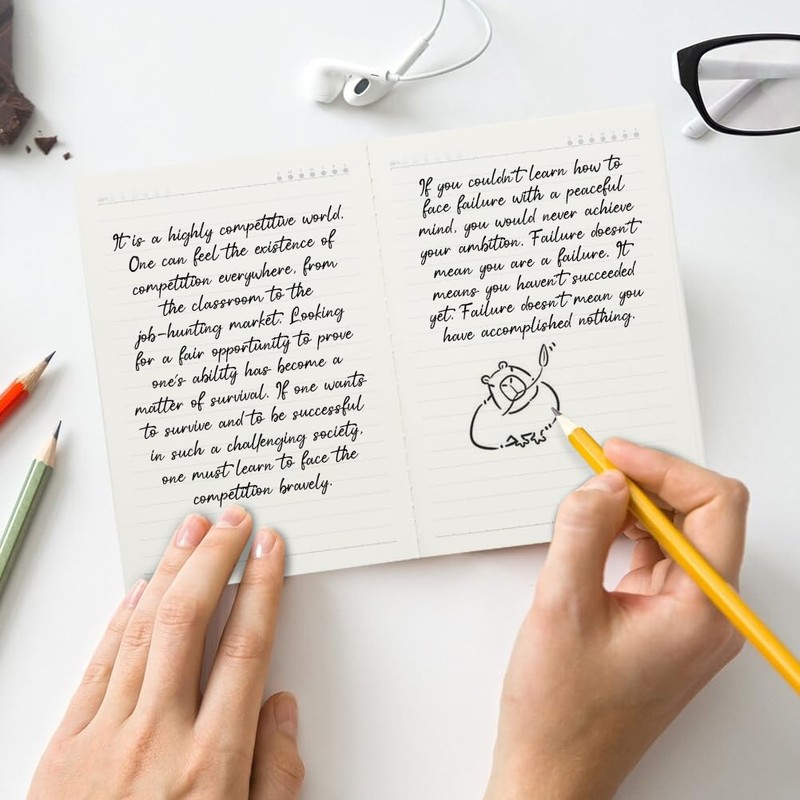 It is a highly competitive world.
One can feel the existence of
competition everywhere, from
the classroom to the
job-hunting market. Looking
for a fair opportunity to prove
one's ability has become a
matter of survival. If one wants
to survive and to be successful
in such a challenging society,
one must learn to face the
competition bravely.
If you couldn't learn how to
face failure with a peaceful
mind, you would never achieve
your ambition. Failure doesn't
mean you are a failure. It
means you haven't succeeded
yet. Failure doesn't mean you
have accomplished nothing.